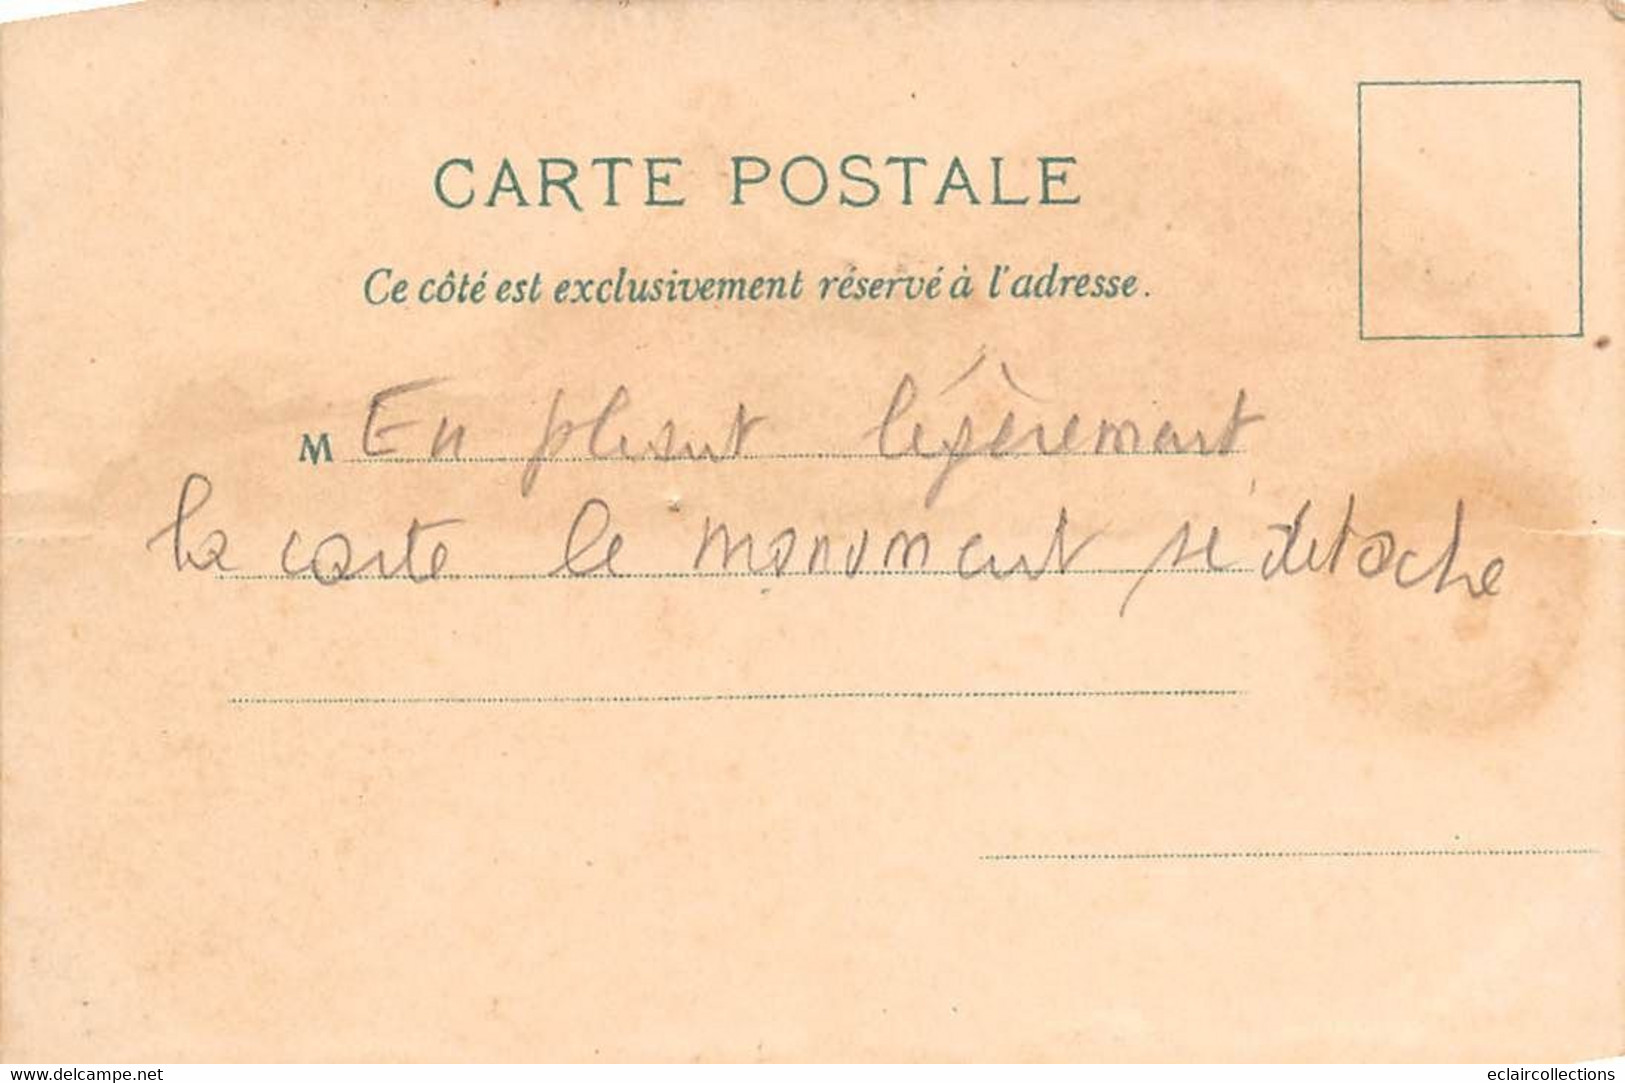 CARTE POSTALE
Ce côté est exclusivement réservé à l'adresse.
M En pliant légèrement
la carte le monument se détache
delcampe.net
eclaircollections